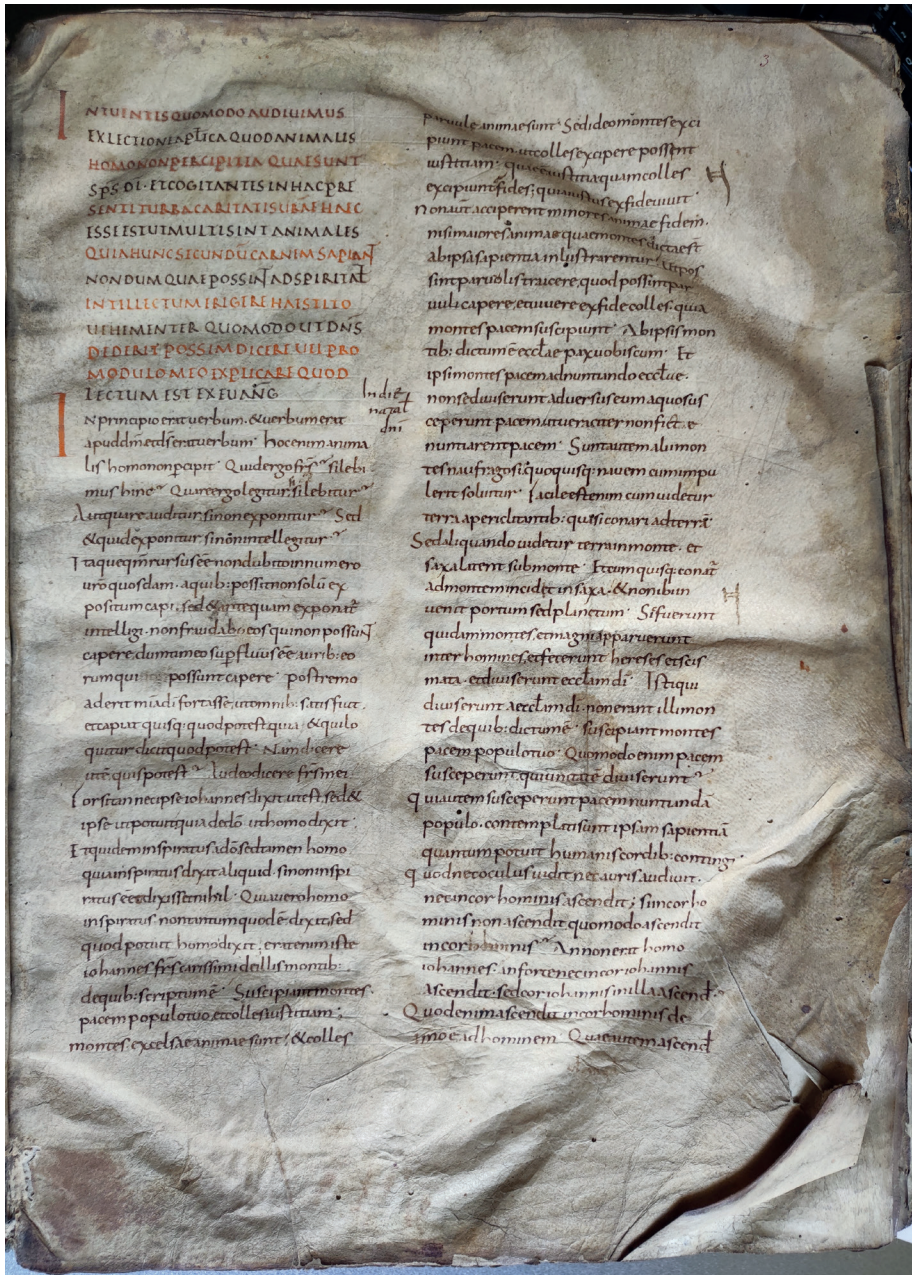 3
INTUENTIS QUOMODO AUDIUIMUS
EX LECTIONE APLICA QUOD ANIMALIS
HOMO NON PERCIPIT EA QUAE SUNT
SPS DI · ET COGITANTIS IN HAC PRE
SENTI TURBA CARITATIS URAE HAEC
ESSE EST UT MULTI SINT ANIMALES
QUI ADHUNC SECUNDU CARNEM SAPIANT
NONDUM QUAE POSSINT AD SPIRITALE
INTILLECTUM ERIGERE HAESITO
UEHIMENTER QUOMODO UT DNS
DEDERIT POSSIM DICERE UEL PRO
MODULO MEO EXPLICARE QUOD
LECTUM EST EX EUANG
In die
natal
dni
In principio erat uerbum · & uerbum erat
apud dm et ds erat uerbum · hoc enim anima
lis homo non pcipit · Quid ergo frs silebi
mus hinc Quare ergo legitur si silebitur
Aut quare auditur si non exponitur Sed
& quid exponitur si non intellegitur
Itaque qm rursus eē non dubito in numero
uro quosdam · a quib: possit non solū ex
positum capi · sed & antequam exponat
intelligi · non fraudabo eos qui non possunt
capere dum timeo supfluus eē aurib: eo
rum qui possunt capere · postremo
aderit mīa dī fortasse ut omnib: satis fiat ·
et capiat quisq: quod potest quia & qui lo
quitur dicit quod potest · Nam dicere
ut ē quis potest Audeo dicere frs mei
Forsitan nec ipse iohannes dixit ut est sed &
ipse ut potuit quia de dō ut homo dixit ·
Et quidem inspiratus a dō sed tamen homo
quia inspiratus dixit aliquid · si non inspi
ratus eēt dixisset nihil · Quia uero homo
inspiratus · non totum quod ē dixit sed
quod potuit homo dixit · erat enim iste
iohannes frs carissimi de illis montib:
de quib: scriptum ē · Suscipiant montes
pacem populo tuo et colles iustitiam ;
montes excelsae animae sunt ; & colles
paruule animae sunt · Sed ideo montes exci
piunt pacem ut colles excipere possent
iustitiam · quae ē iustitia quam colles
excipiunt fides ; quia iustus ex fide uiuit
Non aut acciperent minores animae fidem ·
nisi maiores animae quae montes dictae st
ab ipsa sapientia inlustrarentur ut pos
sint paruolis traicere quod possint par
uuli capere et uiuere ex fide colles · quia
montes pacem suscipiunt · Ab ipsis mon
tib: dictum ē ecclae pax uobiscum · Et
ipsi montes pacem adnuntiando ecclae ·
non se diuiserunt aduersus eum a quo sus
ceperunt pacem ut ueraciter non fictē
nuntiarent pacem · Sunt autem alii mon
tes naufragosi quo quisq: nauem cum impu
lerit soluitur · Facile est enim cum uidetur
terra a periclitantib: quasi conari ad terrā
Sed aliquando uidetur terra in monte · et
saxa latent sub monte · Et cum quisq: conat
ad montem incidet in saxa · & non ibi in
uenit portum sed planctum · Sic fuerunt
quidam montes et magni apparuerunt
inter homines et fecerunt hereses et scis
mata · et diuiserunt ecclam dī · Isti qui
diuiserunt ecclam dī · non erant illi mon
tes de quib: dictum ē · suscipiant montes
pacem populo tuo · Quomodo enim pacem
susceperunt qui unitatē diuiserunt
Qui autem susceperunt pacem nuntiandā
populo · contemplati sunt ipsam sapientiā
quantum potuit humanis cordib: contingi ·
Quod nec oculus uidit nec auris audiuit ·
nec in cor hominis ascendit ; si in cor ho
minis non ascendit quomodo ascendit
in cor iohannis An non erat homo
iohannes an forte nec in cor iohannis
ascendit · sed cor iohannis in illa ascend
Quod enim ascendit in cor hominis de
imo ē ad hominem · Quae autem ascend